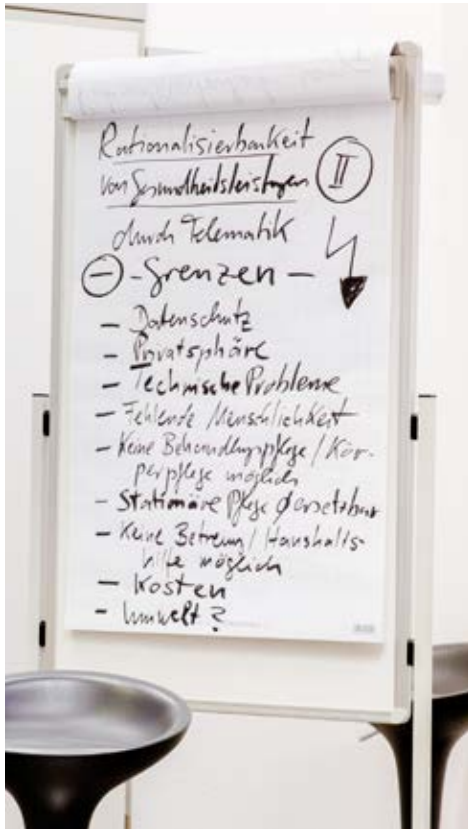 Rationalisierbarkeit
von Gesundheitsleistungen
II
durch Telematik
⊖ - Grenzen -
- Datenschutz
- Privatsphäre
- Technische Probleme
- Fehlende Menschlichkeit
- Keine Behandlungspflege / Kör-
perpflege möglich
- Stationäre Pflege Ø ersetzbar
- Keine Betreuung / Haushalts-
hilfe möglich
- Kosten
- Umwelt?